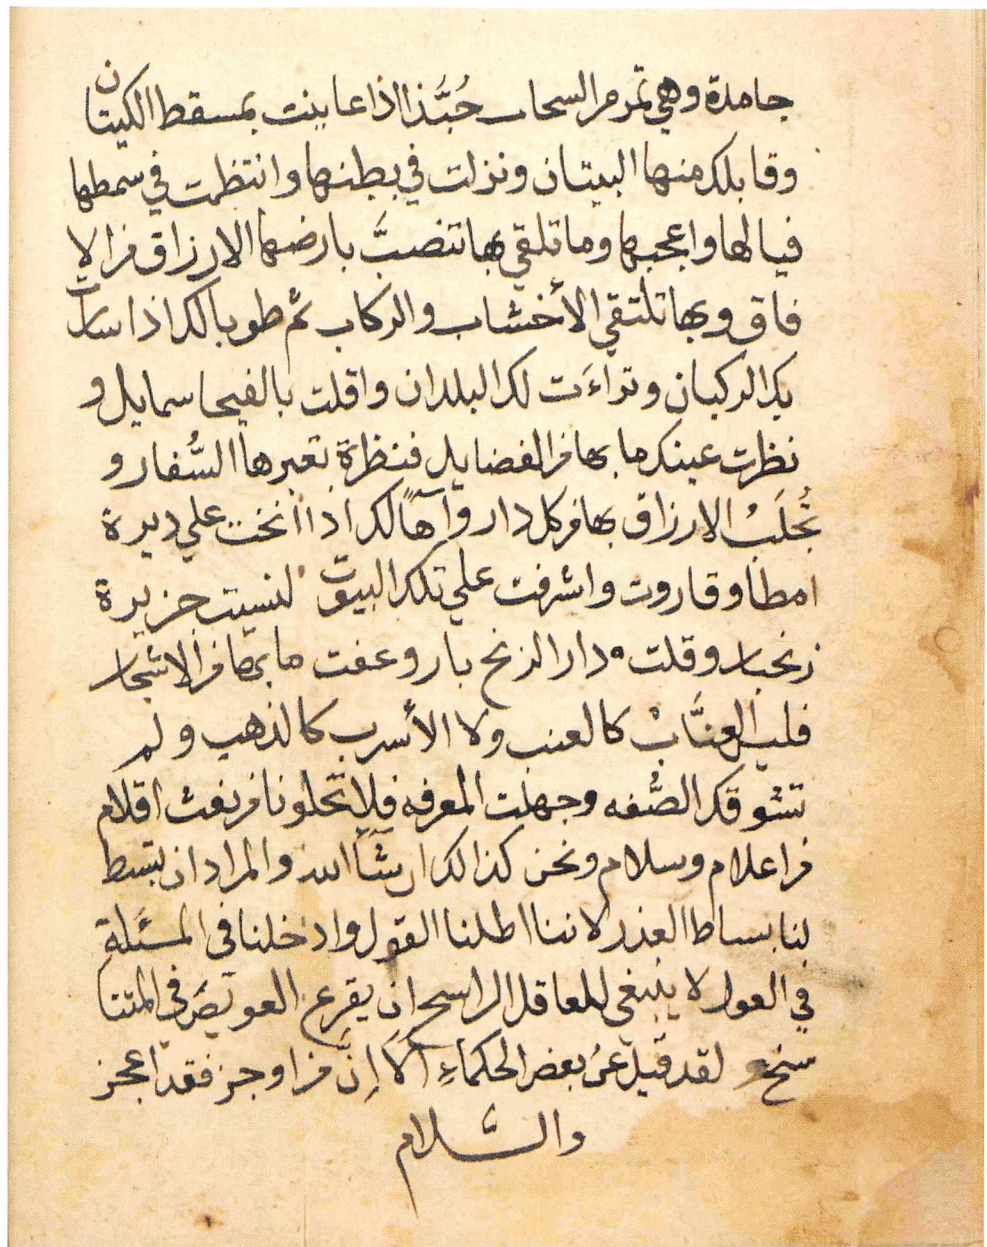 جامدة وهي تمر مر السحاب حُبَّذا اذا عاينت بمسقط الكيتان
وقابلك منها البيتان ونزلت في بطنها وانتظمت في سمطها
فيا لها واعجبها وما تلقي بها تنصبَّ بارضها الارزاق من الا
فاق وبها تلتقي الأخشاب والركاب ثم طوبا لك اذا سارت
بك الركبان وتراءَت لك البلدان واقلت بالفيحا سمايل و
نظرت عينك ما بها من الفضايل فنظرة تعبرها السُّفار و
تُجلَبُ الارزاق بها من كل دار وآهاً لك اذا انخت علي ديرة
امطا وقاروت واشرفت علي تلك البيوت لنسيت جزيرة
زنجبار وقلت دار الزنج بار وعفت ما بها من الاشجار
فليس العنَّاب كالعنب ولا الأسرب كالذهب ولم
تشوقك الصُّفه وجهلت المعرفه فلا تخلونا من نفث اقلام
من اعلام وسلام ونحن كذالك ان شآء الله والمراد ان تبسط
لنا بساط العذر لاننا اطلنا القول وادخلنا في المسئلة
في العول لا ينبغي للعاقل الراسخ ان يقرع العويصَ في المتنا
سخ لقد قيل عن بعض الحكماءِ ألا إنَّ من اوجز فقد اعجز
والسَّلام